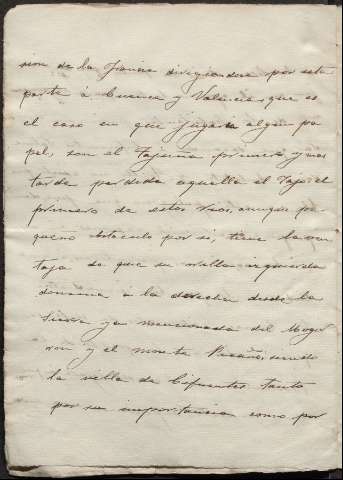 sion de la Francia dirigiendose por esta
parte á Cuenca y Valencia, que es
el caso en que jugara algun pa
pel, son el Tajuña primero y mas
tarde perdida aquella el Tajo; el
primero de estos rios, aunque pe
queño obstaculo por si, tiene la ven
taja de que su orilla izquierda
domina á la derecha desde la
Sierra ya mencionada del
y el monte siendo
la villa de Cifuentes tanto
por su importancia como por